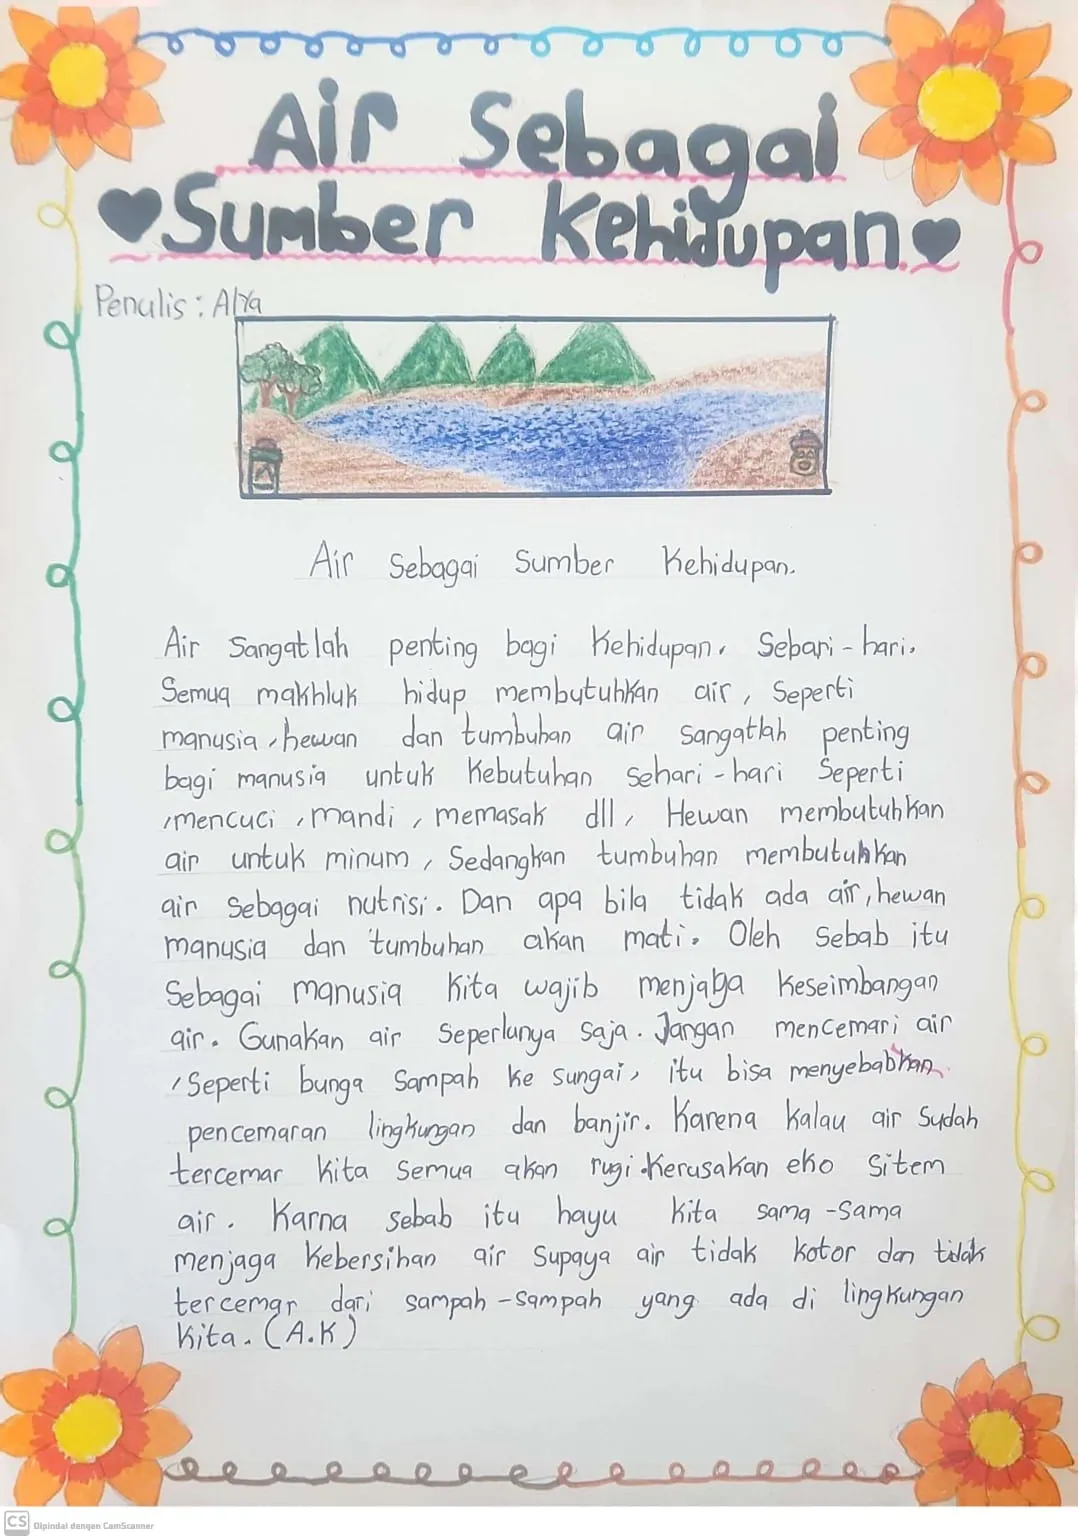 Air Sebagai
Sumber Kehidupan
Penulis : Alya
Air Sebagai Sumber Kehidupan.
Air Sangatlah penting bagi Kehidupan, Sebari-hari.
Semua makhluk hidup membutuhkan air, Seperti
manusia, hewan dan tumbuhan air sangatlah penting
bagi manusia untuk Kebutuhan sehari-hari Seperti
,mencuci ,mandi , memasak dll, Hewan membutuhkan
air untuk minum, Sedangkan tumbuhan membutuhkan
air Sebagai nutrisi. Dan apa bila tidak ada air, hewan
manusia dan tumbuhan akan mati. Oleh Sebab itu
Sebagai manusia Kita wajib menjaga Keseimbangan
air. Gunakan air Seperlunya Saja. Jangan mencemari air
,Seperti bunga Sampah Ke Sungai, itu bisa menyebabkan
pencemaran lingkungan dan banjir. Karena Kalau air Sudah
tercemar Kita Semua akan rugi.Kerusakan eko Sitem
air. Karna sebab itu hayu Kita sama-Sama
menjaga Kebersihan air Supaya air tidak kotor dan tidak
tercemar dari sampah-sampah yang ada di lingkungan
Kita. (A.K)
CS Dipindai dengan CamScanner